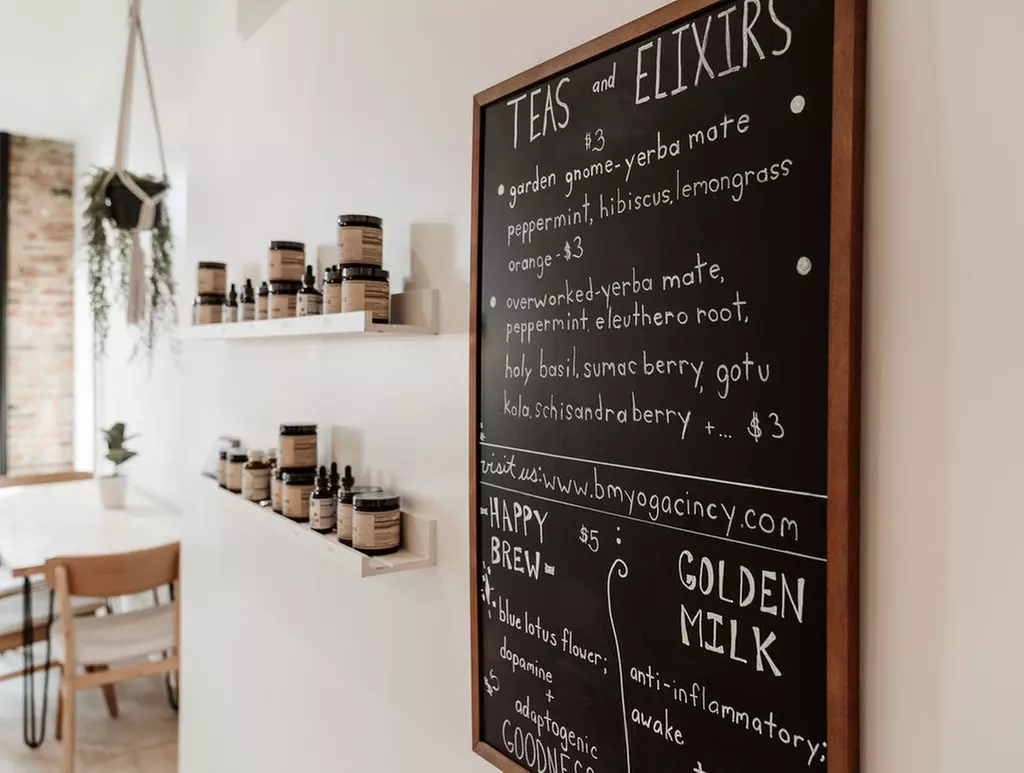 TEAS and ELIXIRS
$3
• garden gnome-yerba mate
peppermint, hibiscus, lemongrass
orange-$3
• overworked-yerba mate,
peppermint, eleuthero root,
holy basil, sumac berry, gotu
kola, schisandra berry +... $3
visit us: www.bmyogacincy.com
-HAPPY
BREW-
$5
blue lotus flower;
dopamine
+
$5
adaptogenic
GOODNESS
GOLDEN
MILK
anti-inflammatory;
awake